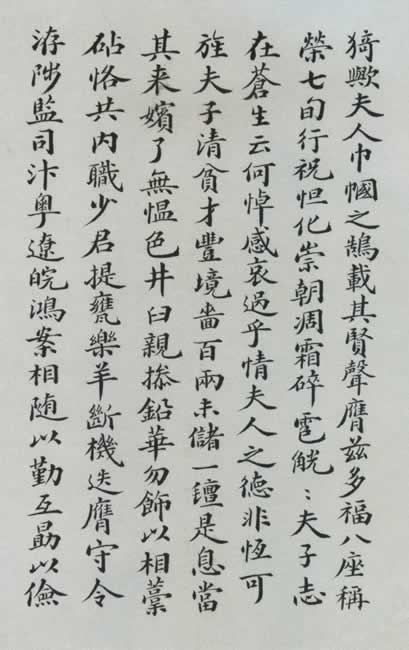 猗歟夫人巾幗之鵠載其賢聲膺茲多福八座稱
榮七旬行祝怛化崇朝凋霜碎雹觥〻夫子志
在蒼生云何悼感哀過乎情夫人之德非恆可
旌夫子清貧才豐境嗇百兩未儲一䥣是息當
其来嬪了無愠色井臼親操鉛華勿飾以相藁
砧恪共内職少君提甕樂羊斷機迭膺守令
洊陟監司汴粵遼皖鴻案相随以勤互勗以儉